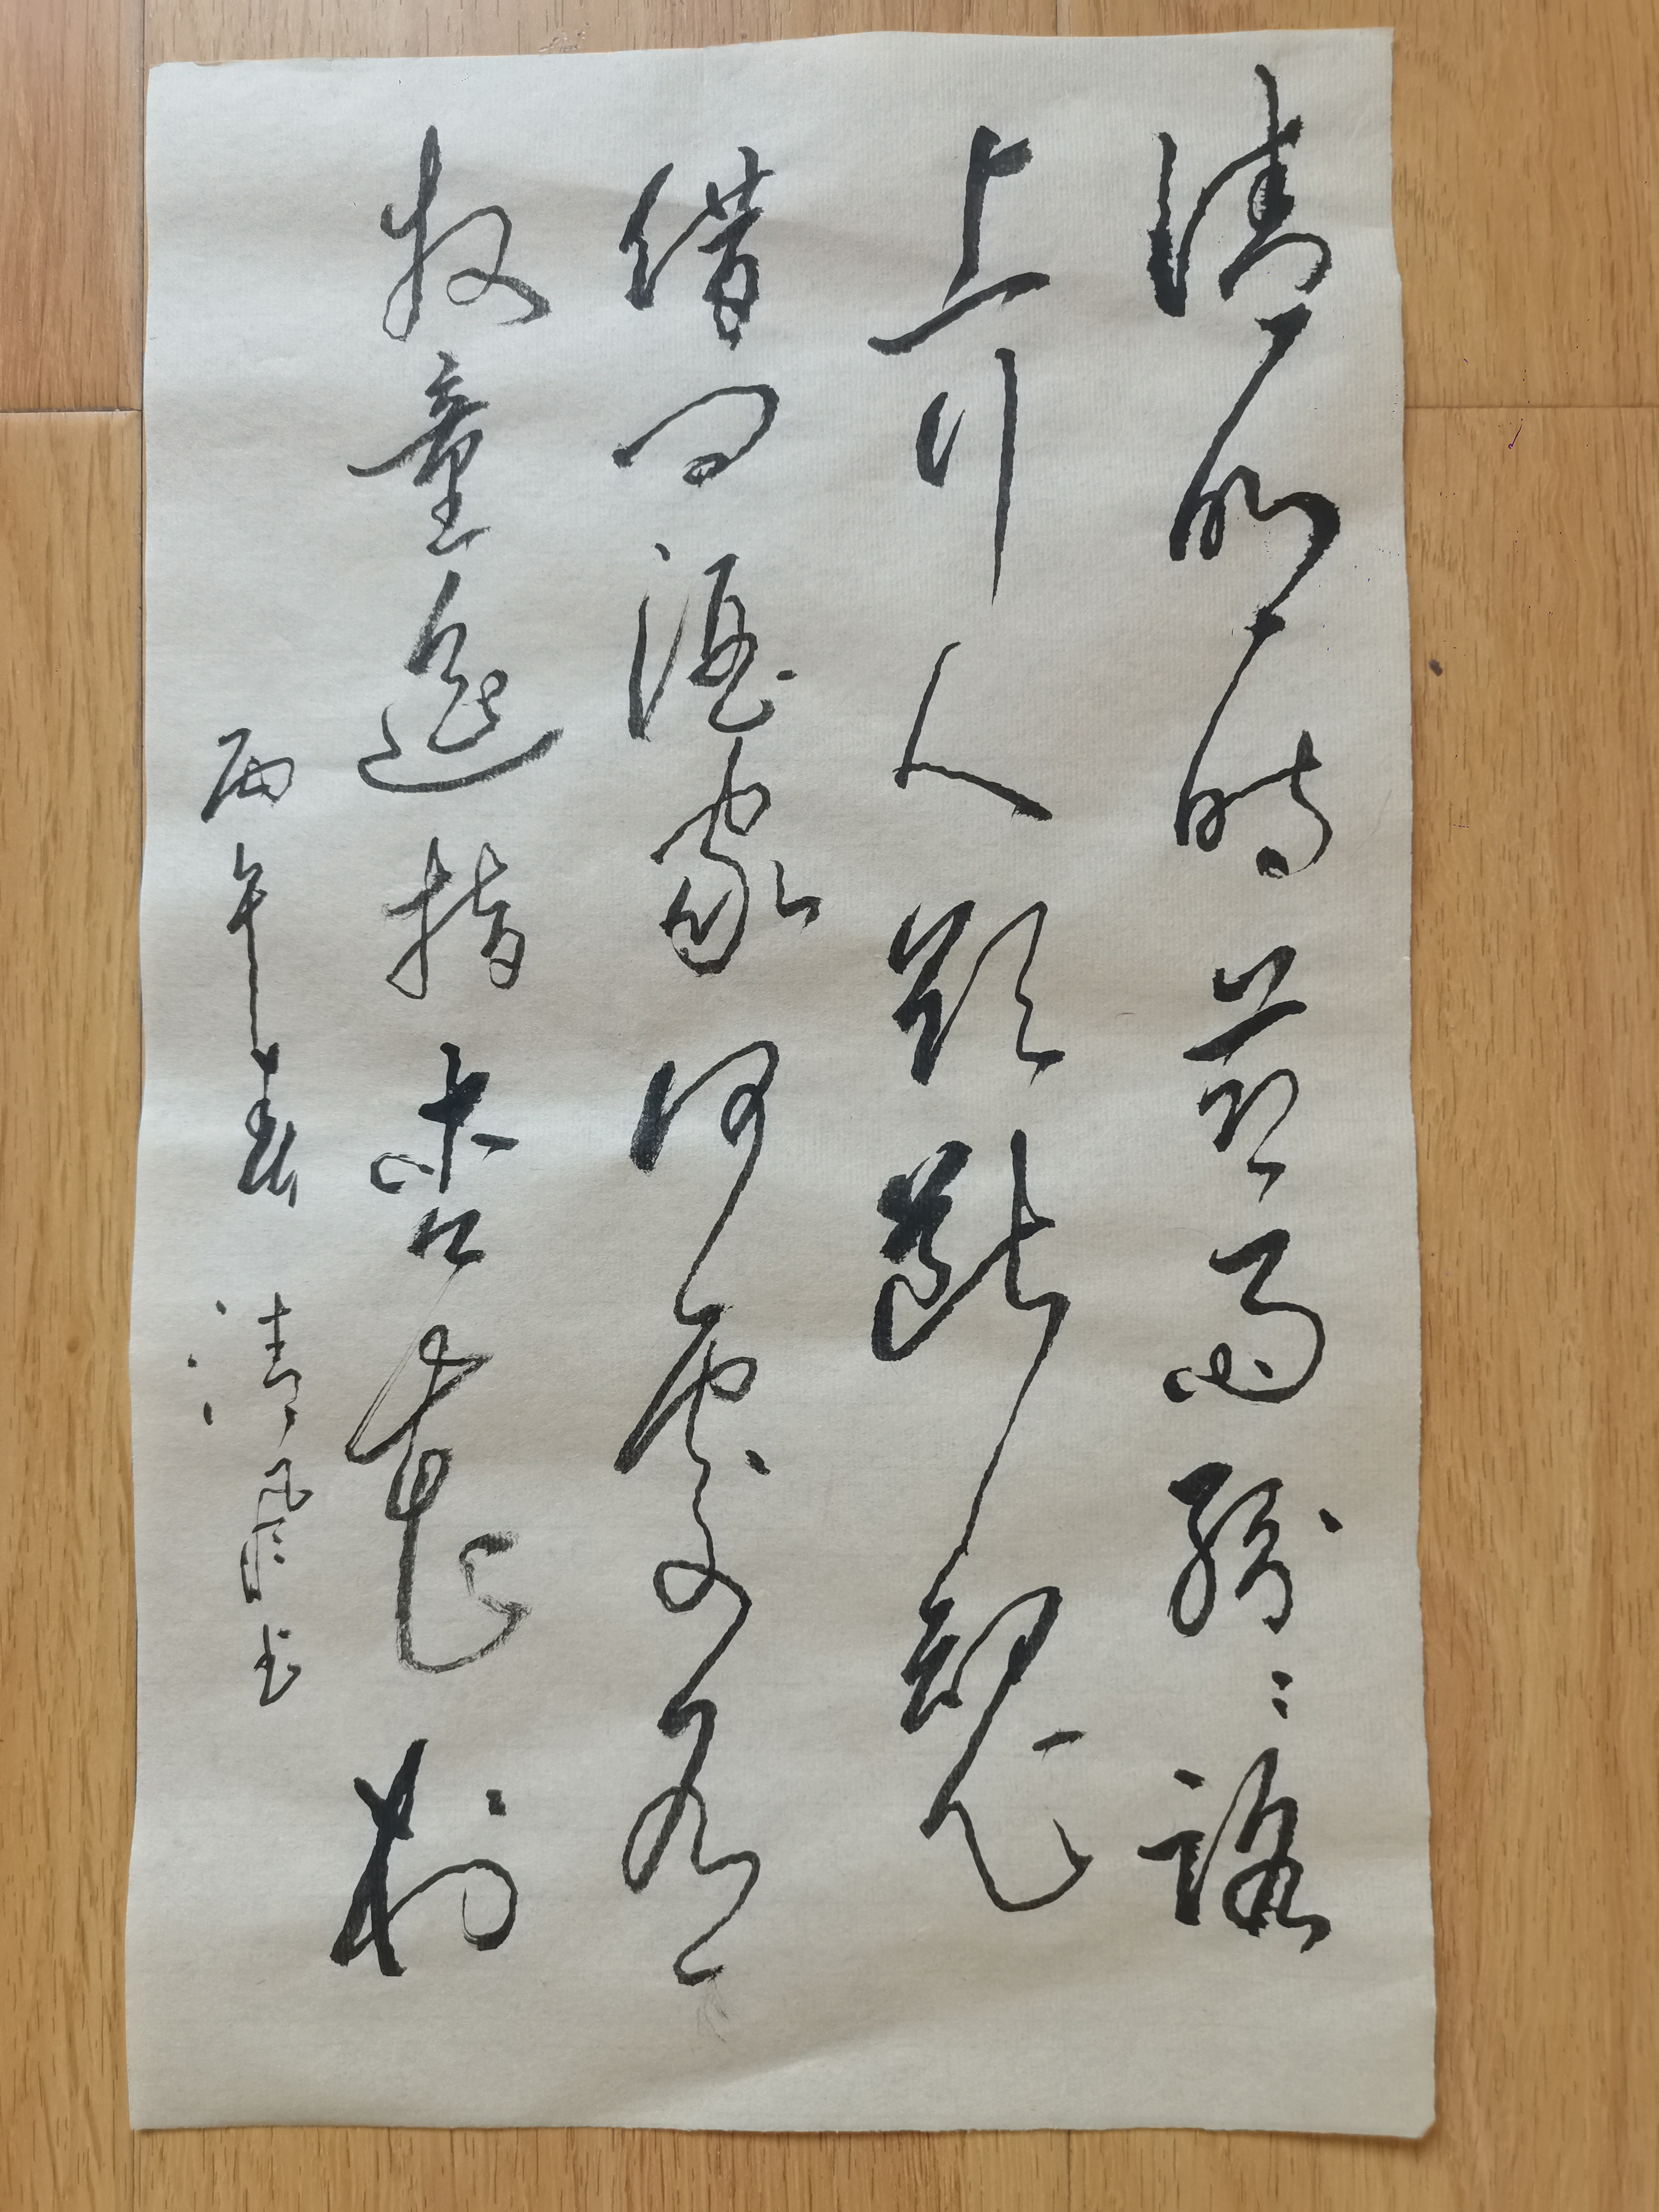 清明时节雨纷：路
上行人欲断魂
借问酒家何处有
牧童遥指杏花村
丙午年春 清风书